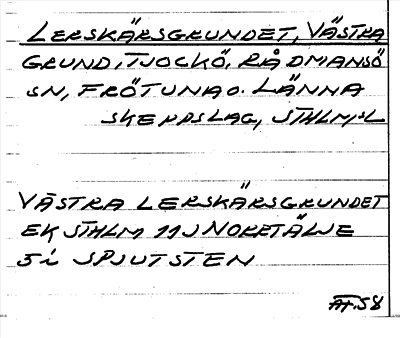 LERSKÄRSGRUNDET, VÄSTRA
GRUND, TJOCKÖ, RÅDMANSÖ
SN, FRÖTUNA O. LÄNNA
SKEPPSLAG, STHLMS L
VÄSTRA LERSKÄRSGRUNDET
EK STHLM 11J NORRTÄLJE
5i SPJUTSTEN
AF.58